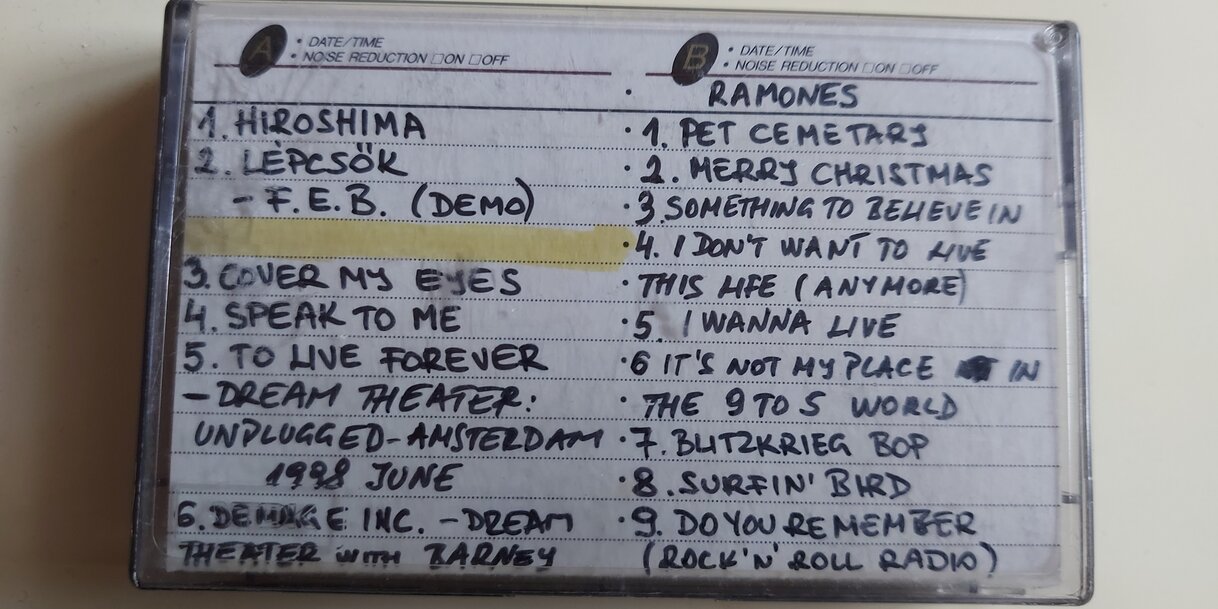 A
• DATE/TIME
• NOISE REDUCTION □ON □OFF
1. HIROSHIMA
2. LÉPCSŐK
- F.E.B. (DEMO)
3. COVER MY EYES
4. SPEAK TO ME
5. TO LIVE FOREVER
- DREAM THEATER:
UNPLUGGED - AMSTERDAM
1998 JUNE
6. DEMAGE INC. - DREAM
THEATER WITH BARNEY
B
• DATE/TIME
• NOISE REDUCTION □ON □OFF
RAMONES
1. PET CEMETARY
2. MERRY CHRISTMAS
3 SOMETHING TO BELIEVE IN
4. I DON'T WANT TO LIVE
THIS LIFE (ANYMORE)
5 I WANNA LIVE
6 IT'S NOT MY PLACE IN
THE 9 TO 5 WORLD
7. BLITZKRIEG BOP
8. SURFIN' BIRD
9. DO YOU REMEMBER
(ROCK'N'ROLL RADIO)